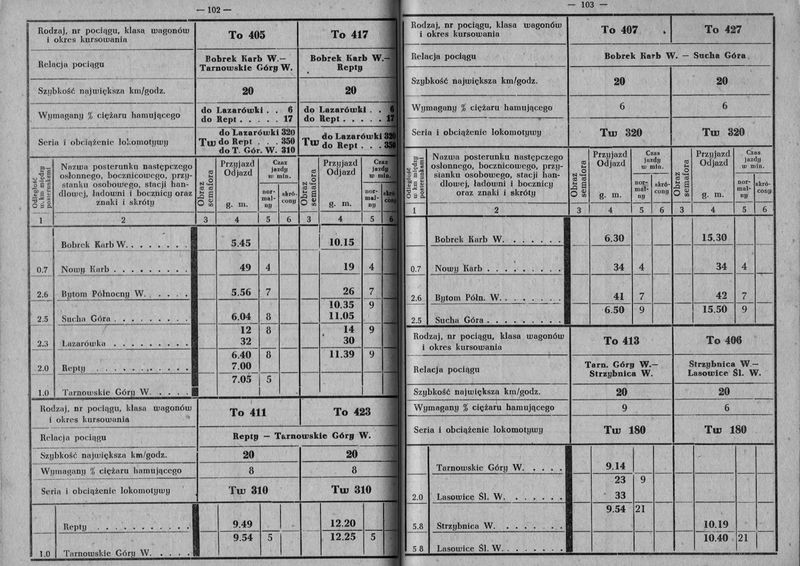 — 102 —
Rodzaj, nr pociągu, klasa wagonów i okres kursowania To 405 To 417
Relacja pociągu Bobrek Karb W.— Tarnowskie Góry W. Bobrek Karb W.— Repty
Szybkość największa km/godz. 20 20
Wymagany % ciężaru hamującego do Lazarówki . . 6 do Lazarówki . . 6
do Rept . . . . . 17 do Rept . . . . . 17
Seria i obciążenie lokomotywy Tw do Lazarówki 320 Tw do Lazarówki 320
do Rept . . . 350 do Rept . . . 350
do T. Gór. W. 310
Odległość w km między posterunkami
Nazwa posterunku następczego osłonnego, bocznicowego, przystanku osobowego, stacji handlowej, ładowni i bocznicy oraz znaki i skróty
Obraz semafora Przyjazd Odjazd g. m. Czas jazdy w min. normalny skrócony
Obraz semafora Przyjazd Odjazd g. m. Czas jazdy w min. normalny skrócony
1 2 3 4 5 6 3 4 5 6
Bobrek Karb W. . . . . . . . 5.45 10.15
0.7 Nowy Karb . . . . . . . . . 49 4 19 4
2.6 Bytom Północny W. . . . . 5.56 7 26 7
10.35 9
2.5 Sucha Góra . . . . . . . . . 6.04 8 11.05
12 8 14 9
2.3 Lazarówka . . . . . . . . . 32 30
6.40 8 11.39 9
2.0 Repty . . . . . . . . . . . 7.00
7.05 5
1.0 Tarnowskie Góry W. . . . .
Rodzaj, nr pociągu, klasa wagonów i okres kursowania To 411 To 423
Relacja pociągu Repty — Tarnowskie Góry W.
Szybkość największa km/godz. 20 20
Wymagany % ciężaru hamującego 8 8
Seria i obciążenie lokomotywy Tw 310 Tw 310
Repty . . . . . . . . . . . 9.49 12.20
9.54 5 12.25 5
1.0 Tarnowskie Góry W. . . . .
— 103 —
Rodzaj, nr pociągu, klasa wagonów i okres kursowania To 407 To 427
Relacja pociągu Bobrek Karb W. — Sucha Góra
Szybkość największa km/godz. 20 20
Wymagany % ciężaru hamującego 6 6
Seria i obciążenie lokomotywy Tw 320 Tw 320
Odległość w km między posterunkami
Nazwa posterunku następczego osłonnego, bocznicowego, przystanku osobowego, stacji handlowej, ładowni i bocznicy oraz znaki i skróty
Obraz semafora Przyjazd Odjazd g. m. Czas jazdy w min. normalny skrócony
Obraz semafora Przyjazd Odjazd g. m. Czas jazdy w min. normalny skrócony
1 2 3 4 5 6 3 4 5 6
Bobrek Karb W. . . . . . . . 6.30 15.30
0.7 Nowy Karb . . . . . . . . . 34 4 34 4
2.6 Bytom Półn. W. . . . . . . . 41 7 42 7
6.50 9 15.50 9
2.5 Sucha Góra . . . . . . . . .
Rodzaj, nr pociągu, klasa wagonów i okres kursowania To 413 To 406
Relacja pociągu Tarn. Góry W.— Strzybnica W. Strzybnica W.— Lasowice Śl. W.
Szybkość największa km/godz. 20 20
Wymagany % ciężaru hamującego 9 6
Seria i obciążenie lokomotywy Tw 180 Tw 180
Tarnowskie Góry W. . . . . 9.14
23 9
2.0 Lasowice Śl. W. . . . . . . 33
9.54 21
5.8 Strzybnica W. . . . . . . . 10.19
10.40 21
5 8 Lasowice Śl. W. . . . . . .